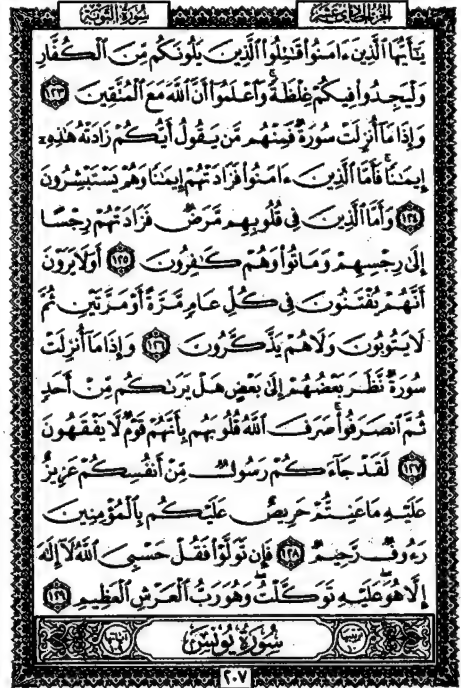 الجزء الحادي عشر سورة التوبة
يَٰٓأَيُّهَا ٱلَّذِينَ ءَامَنُوا۟ قَٰتِلُوا۟ ٱلَّذِينَ يَلُونَكُم مِّنَ ٱلْكُفَّارِ
وَلْيَجِدُوا۟ فِيكُمْ غِلْظَةً ۚ وَٱعْلَمُوٓا۟ أَنَّ ٱللَّهَ مَعَ ٱلْمُتَّقِينَ ١٢٣
وَإِذَا مَآ أُنزِلَتْ سُورَةٌ فَمِنْهُم مَّن يَقُولُ أَيُّكُمْ زَادَتْهُ هَٰذِهِۦٓ
إِيمَٰنًا ۚ فَأَمَّا ٱلَّذِينَ ءَامَنُوا۟ فَزَادَتْهُمْ إِيمَٰنًا وَهُمْ يَسْتَبْشِرُونَ
١٢٤ وَأَمَّا ٱلَّذِينَ فِى قُلُوبِهِم مَّرَضٌ فَزَادَتْهُمْ رِجْسًا
إِلَىٰ رِجْسِهِمْ وَمَاتُوا۟ وَهُمْ كَٰفِرُونَ ١٢٥ أَوَلَا يَرَوْنَ
أَنَّهُمْ يُفْتَنُونَ فِى كُلِّ عَامٍ مَّرَّةً أَوْ مَرَّتَيْنِ ثُمَّ
لَا يَتُوبُونَ وَلَا هُمْ يَذَّكَّرُونَ ١٢٦ وَإِذَا مَآ أُنزِلَتْ
سُورَةٌ نَّظَرَ بَعْضُهُمْ إِلَىٰ بَعْضٍ هَلْ يَرَىٰكُم مِّنْ أَحَدٍ
ثُمَّ ٱنصَرَفُوا۟ ۚ صَرَفَ ٱللَّهُ قُلُوبَهُم بِأَنَّهُمْ قَوْمٌ لَّا يَفْقَهُونَ
١٢٧ لَقَدْ جَآءَكُمْ رَسُولٌ مِّنْ أَنفُسِكُمْ عَزِيزٌ
عَلَيْهِ مَا عَنِتُّمْ حَرِيصٌ عَلَيْكُم بِٱلْمُؤْمِنِينَ
رَءُوفٌ رَّحِيمٌ ١٢٨ فَإِن تَوَلَّوْا۟ فَقُلْ حَسْبِىَ ٱللَّهُ لَآ إِلَٰهَ
إِلَّا هُوَ ۖ عَلَيْهِ تَوَكَّلْتُ ۖ وَهُوَ رَبُّ ٱلْعَرْشِ ٱلْعَظِيمِ ١٢٩
سُورَةُ يُونُسَ
٢٠٧